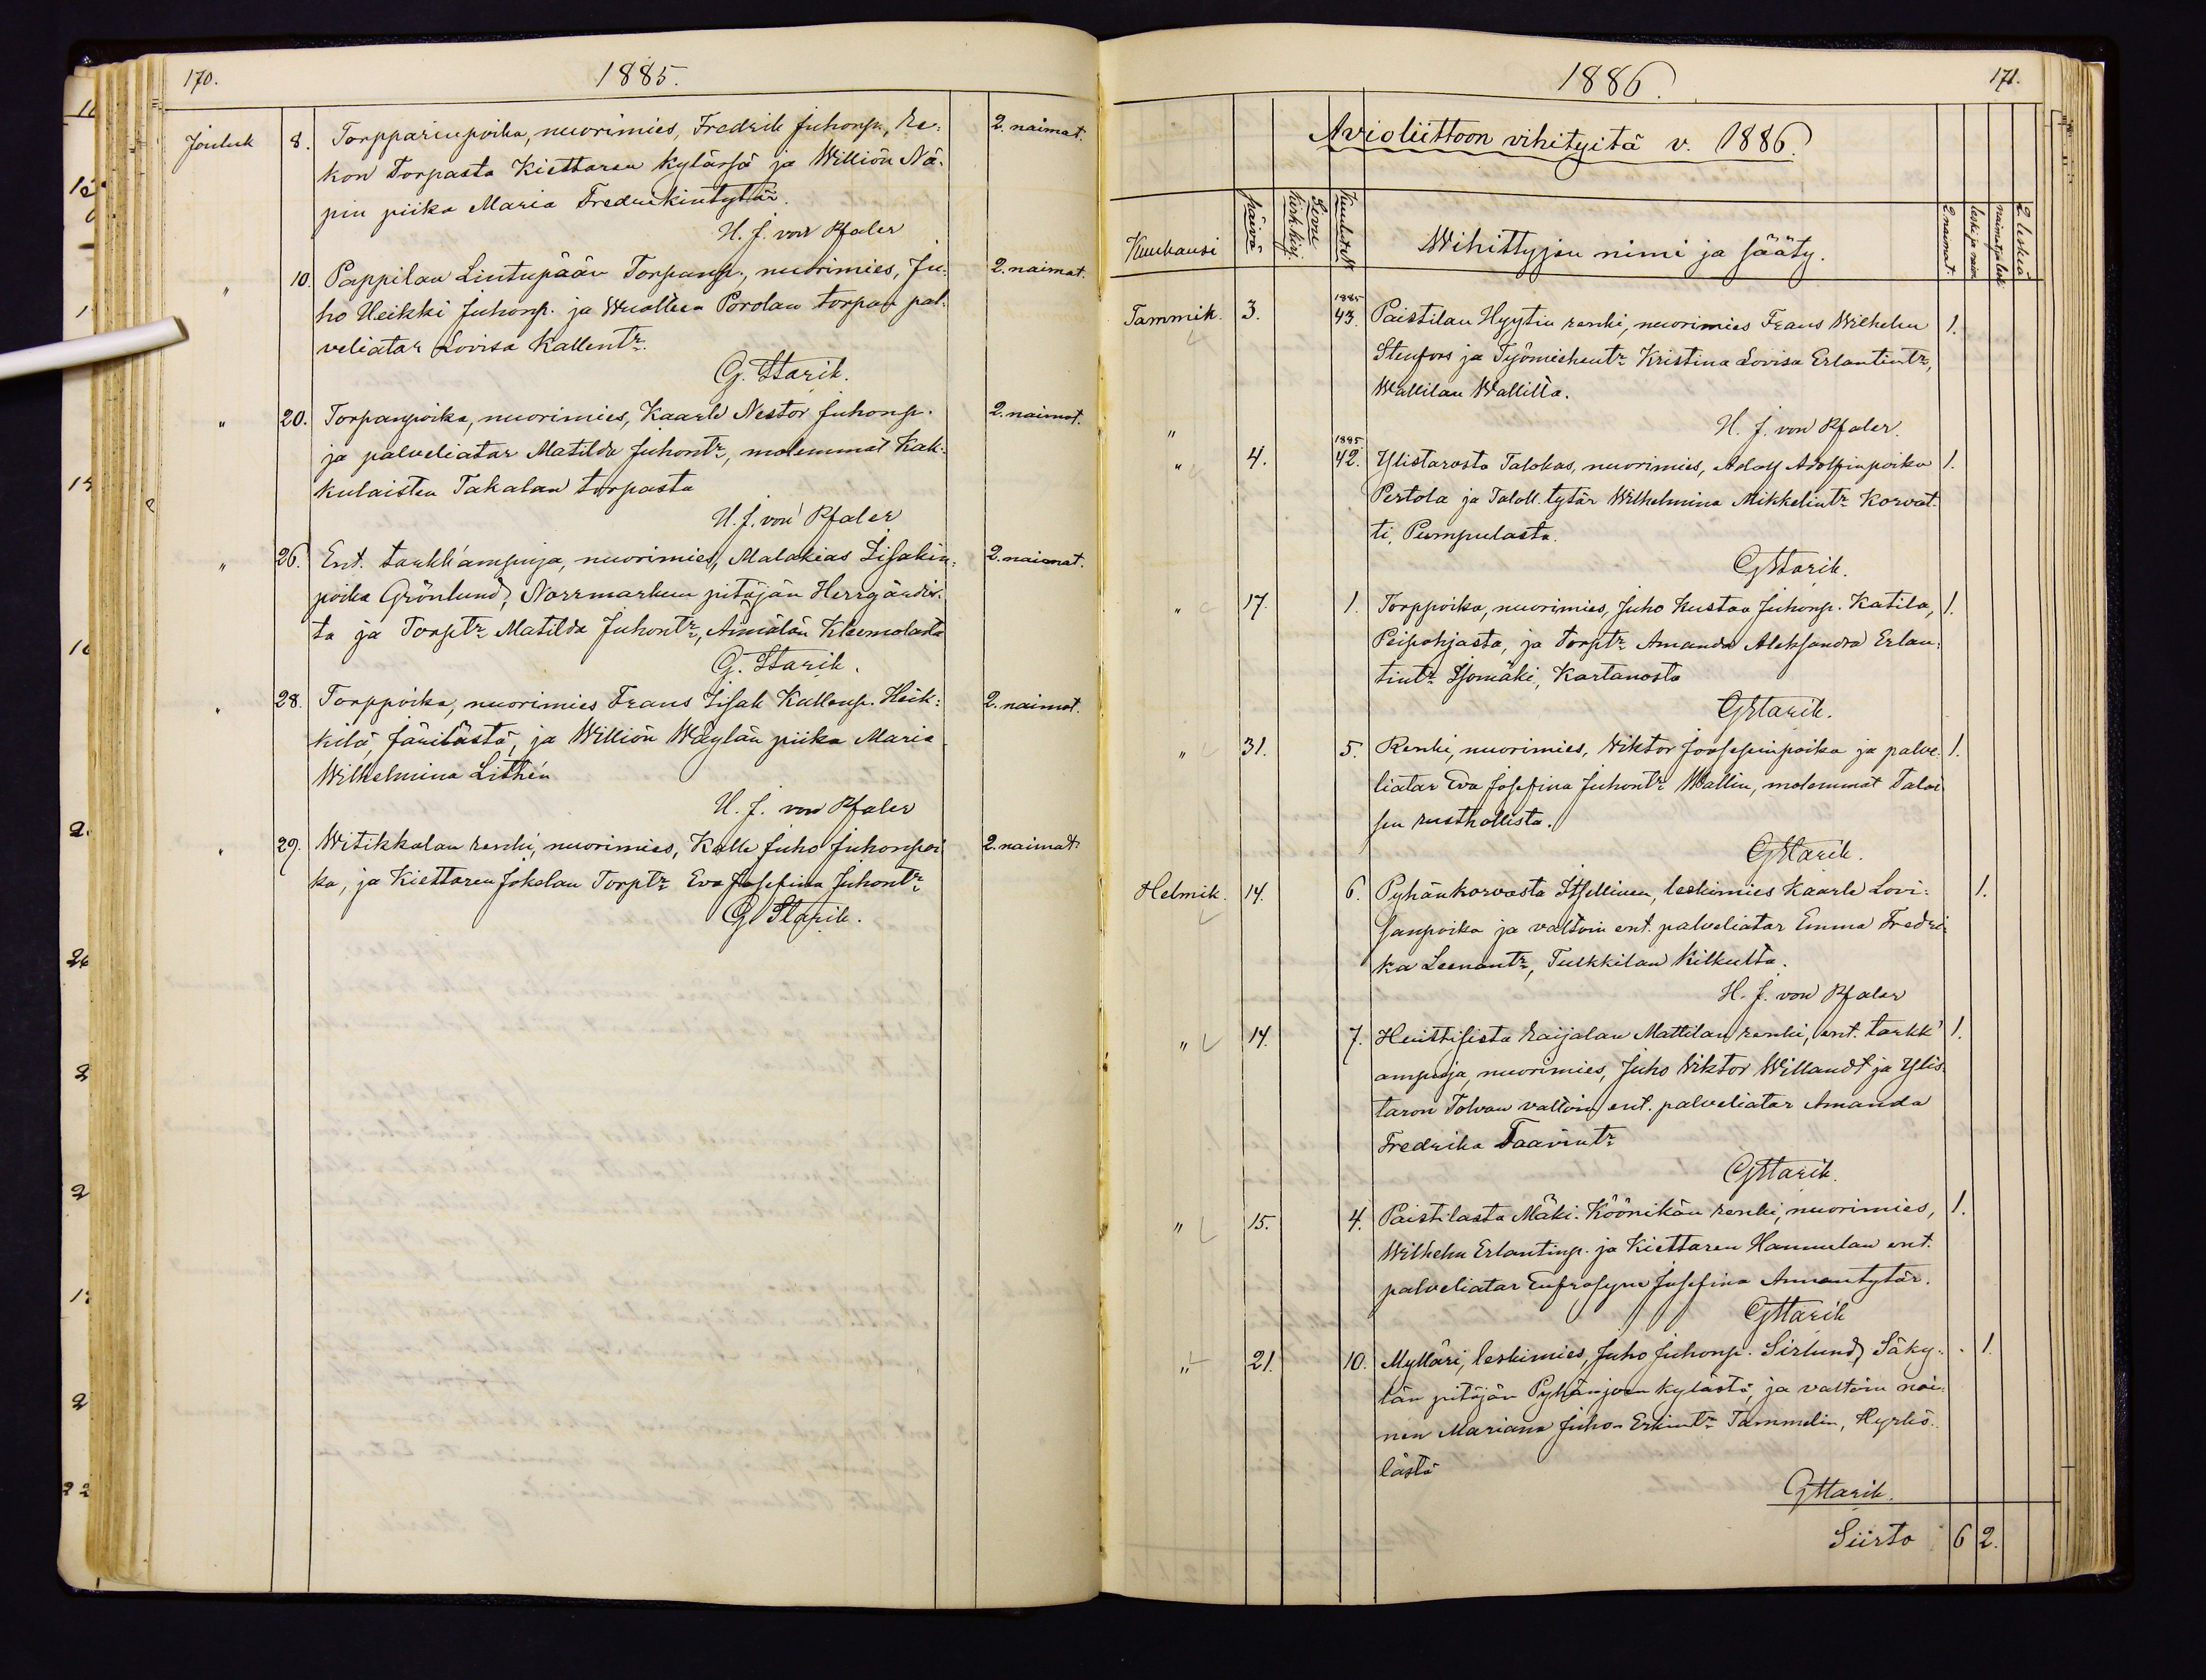 170.
1885.
Jouluk 8. Torpparinpoika, nuorimies, Fredrik Juhonp., Re-
kon Torpasta Kiettaren kylässä ja Williön Nä-
pin piika Maria Fredrikintytär. 2. naimat.
H. J. von Pfaler
" 10. Pappilan Lintupään Torpanp., nuorimies, Ju-
ho Heikki Juhonp. ja Wuolteen Porolan torpan pal-
veliatar Lovisa Kallentr. 2. naimat.
G. Starik.
" 20. Torpanpoika, nuorimies, Kaarle Nestor Juhonp.
ja palveliatar Matilda Juhontr, molemmat Kak-
kulaisten Takalan torpasta 2. naimat.
H. J. von Pfaler
" 26. Ent. tarkk'ampuja, nuorimies, Malakias Iisakin-
poika Grönlund, Norrmarkun pitäjän Herrgårdis-
ta ja Torptr Matilda Juhontr, Annalan Kleemolasta 2. naimat.
G. Starik.
" 28. Torppoika, nuorimies Frans Iisak Kallenp. Heik-
kilä, Järilästä, ja Williön Wäylän piika Maria
Wilhelmina Lithén 2. naimat.
H. J. von Pfaler
" 29. Witikkalan renki, nuorimies, Kalle Juho Juhonpoi
ka, ja Kiettaren Jokelan Torptr Eva Josefina Juhontr 2. naimat.
G Starik.
1886.
171.
Avioliittoon vihityitä v. 1886.
Kuukausi päivä Sivu Kirk.kirj. Kuulut. № Wihittyjen nimi ja sääty. 2. naimat. leski ja naim. naimat. ja leski 2. leskeä
Tammik. 3. 1885 43. Paistilan Hyytin renki, nuorimies Frans Wilhelm 1.
Stenfors ja Työmiehentr Kristina Lovisa Erlantintr,
Wallilan Wallilta.
" H. J. von Pfaler.
" 4. 1885 42. Ylistarosta Talokas, nuorimies, Adolf Adolfinpoika 1.
Pertola ja Taloll. tytär Wilhelmina Mikkelintr Korvat-
ti, Pumpulasta.
GStarik.
" 17. 1. Torppoika, nuorimies, Juho Kustaa Juhonp. Katila, 1.
Peipohjasta, ja Torptr Amanda Aleksandra Erlan-
tintr Isomäki, Kartanosta
GStarik.
" 31. 5. Renki, nuorimies, Viktor Joosepinpoika ja palve- 1.
liatar Eva Josefina Juhontr Wallin, molemmat Taloi
sen rusthollista.
GStarik.
Helmik. 14. 6. Pyhänkorvasta Itsellinen, leskimies Kaarle Lovi- 1.
sanpoika ja valtoin ent. palveliatar Emma Fredri-
ka Leenantr, Tulkkilan Kilkulta.
H. J. von Pfaler
" 14. 7. Huittisista Raijalan Mattilan renki, ent. tarkk' 1.
ampuja, nuorimies, Juho Viktor Willandt ja Ylis-
taron Tolvan valtoin ent. palveliatar Amanda
Fredrika Taavintr
GStarik.
" 15. 4. Paistilasta Mäki-Köönikän renki, nuorimies, 1.
Wilhelm Erlantinp. ja Kiettaren Hannulan ent.
palveliatar Eufrosyne Josefina Annantytär.
GStarik
" 21. 10. Mylläri, leskimies, Juho Juhonp. Sirlund, Säky- 1.
län pitäjän Pyhänjoen kylästä, ja valtoin nai-
nen Mariana Juho-Erkintr Tammelin, Hyrkö-
lästä
GStarik.
Siirto 6 2.